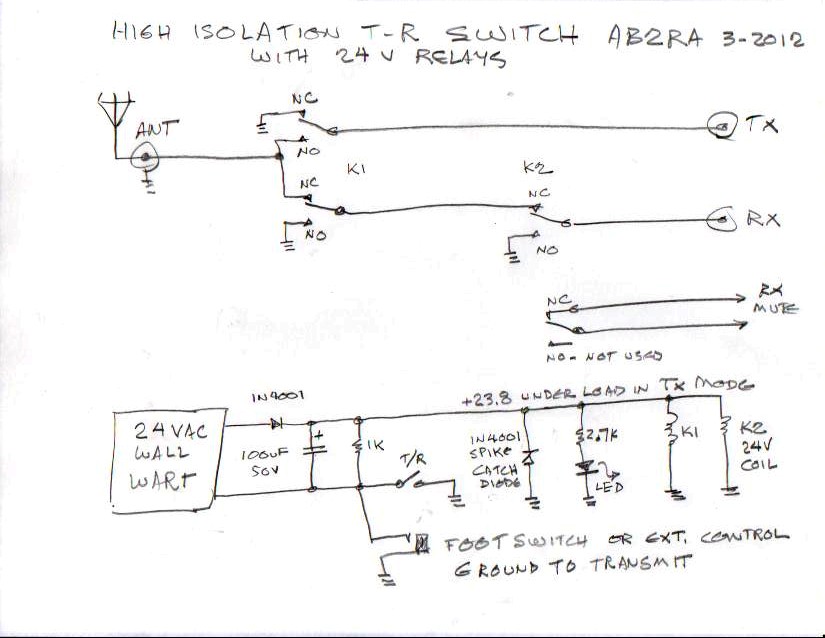 HIGH ISOLATION T-R SWITCH AB2RA 3-2012
WITH 24 V RELAYS
NC
ANT
TX
NO
K1
K2
NC
NC
RX
NO
NO
NC
RX
MUTE
NO - NOT USED
1N4001
+23.8 UNDER LOAD IN TX MODE
24 VAC
WALL
WART
100UF
50V
+
1K
T/R
1N4001
SPIKE
CATCH
DIODE
2.7K
LED
K1
K2
24V
COIL
FOOT SWITCH OR EXT. CONTROL
GROUND TO TRANSMIT